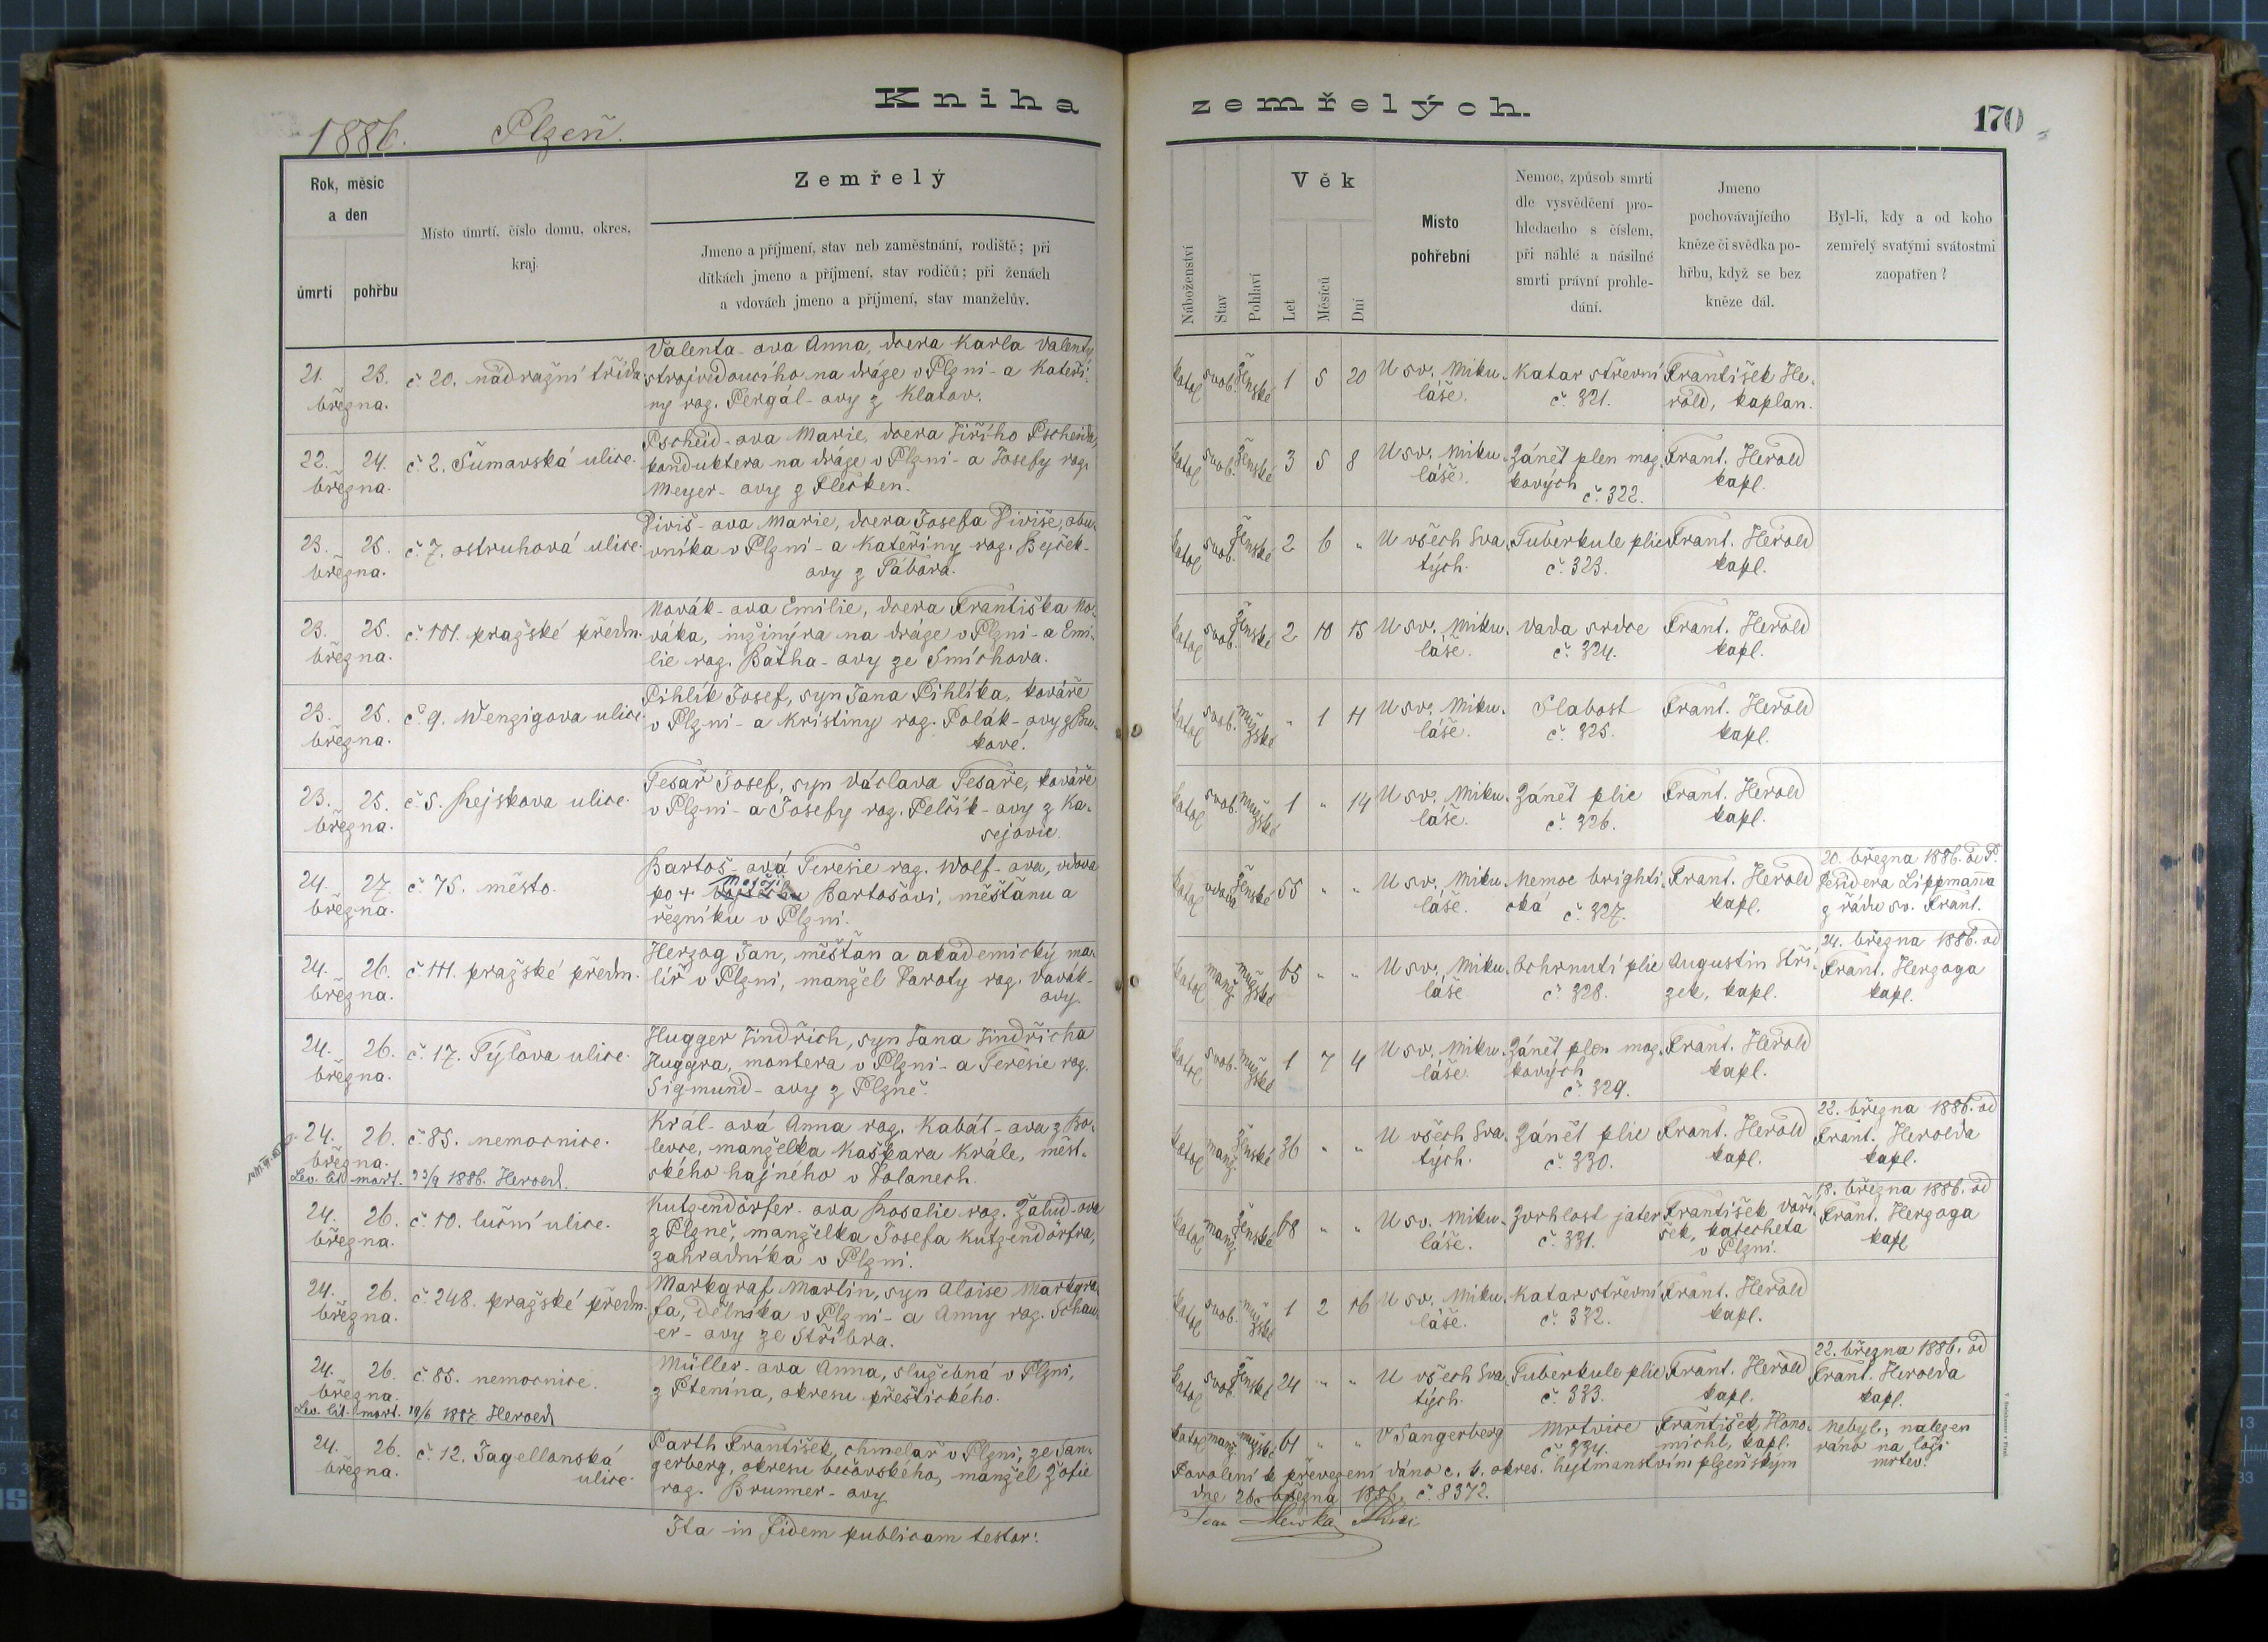 Kniha
zemřelých.
1886. Plzeň.
170
Rok, měsíc
a den
úmrtí
pohřbu
Místo úmrtí, číslo domu, okres,
kraj.
Zemřelý
Jmeno a příjmení, stav neb zaměstnání, rodiště; při
dítkách jmeno a příjmení, stav rodičů; při ženách
a vdovách jmeno a příjmení, stav manželův.
Náboženství
Stav
Pohlaví
Věk
Let
Měsíců
Dní
Místo
pohřební
Nemoc, způsob smrti
dle vysvědčení pro-
hledacího s číslem,
při náhlé a násilné
smrti právní prohle-
dání.
Jmeno
pochovávajícího
kněze či svědka po-
hřbu, když se bez
kněze dál.
Byl-li, kdy a od koho
zemřelý svatými svátostmi
zaopatřen?
21. 23.
března.
č 20. nádražní třída
Valenta-ova Anna, dcera Karla Valenty
strojvedoucího na dráze v Plzni - a Kateři-
ny roz. Pergál-ovy z Klatov.
katol svob. ženské 1 5 20
U sv. Miku-
láše.
Katar střevní
č. 321.
František He-
rold, kaplan.
22. 24.
března.
č 2. Šumavská ulice.
Pscheid-ova Marie, dcera Jiřího Pscheida,
konduktera na dráze v Plzni - a Josefy roz.
Meyer-ovy z Flecken.
katol svob. ženské 3 5 8
U sv. Miku-
láše.
Zánět plen moz-
kových
č. 322.
Frant. Herold
kapl.
23. 25.
března.
č. 7. ostruhová ulice.
Diviš-ova Marie, dcera Josefa Diviše, obu-
vníka v Plzni - a Kateřiny roz. Bejček-
ovy z Tábora.
katol svob. ženské 2 6 "
U všech Sva-
tých.
Tuberkule plic
č. 323.
Frant. Herold
kapl.
23. 25.
března.
č. 101. pražské předm.
Novák-ova Emilie, dcera Františka No-
váka, inžinýra na dráze v Plzni - a Emi-
lie roz. Bátha-ovy ze Smíchova.
katol svob. ženské 2 10 15
U sv. Miku-
láše.
Vada srdce
č. 324.
Frant. Herold
kapl.
23. 25.
března.
č. 9. Wenzigova ulice
Pihlík Josef, syn Jana Pihlíka, kováře
v Plzni - a Kristiny roz. Polák-ovy z Bu-
kové.
katol svob. mužské " 1 11
U sv. Miku-
láše.
Slabost
č. 325.
Frant. Herold
kapl.
23. 25.
března.
č 5. Rejskova ulice.
Tesař Josef, syn Václava Tesaře, kováře
v Plzni - a Josefy roz. Pelčík-ovy z Ka-
sejovic.
katol svob. mužské 1 " 14
U sv. Miku-
láše.
Zánět plic
č. 326.
Frant. Herold
kapl.
24. 27.
března.
č. 75. město.
Bartoš-ová Teresie roz. Wolf-ova, vdova
po + Bartošovi, měšťanu a
řezníku v Plzni.
katol vdova ženské 55 " "
U sv. Miku-
láše.
Nemoc brighti-
cká č. 327.
Frant. Herold
kapl.
20. března 1886. od P.
Desidera Lippmanna
z řádu sv. Frant.
24. 26.
března.
č 111. pražské předm.
Herzog Jan, měšťan a akademický ma-
líř v Plzni, manžel Doroty roz. Vavák-
ovy.
katol manž. mužské 65 " "
U sv. Miku-
láše
Ochrnutí plic
č. 328.
Augustin Stří-
zek, kapl.
24. března 1886. od
Frant. Herzoga
kapl.
24. 26.
března.
č. 17. Týlova ulice.
Hugger Jindřich, syn Jana Jindřicha
Huggra, montera v Plzni - a Teresie roz.
Sigmund-ovy z Plzně.
katol svob. mužské 1 7 4
U sv. Miku-
láše.
Zánět plen moz-
kových
č. 329.
Frant. Herold
kapl.
24. 26.
března.
Lev. lit. mort. 23/9 1886. Herold.
č. 85. nemocnice.
Král-ová Anna roz. Kabát-ova z Bo-
levce, manželka Kašpara Krále, měst-
ského hajného v Bolanech.
katol manž. ženské 36 " "
U všech Sva-
tých.
Zánět plic
č. 330.
Frant. Herold
kapl.
22. března 1886. od
Frant. Herolda
kapl.
24. 26.
března.
č. 10. luční ulice.
Kutzendörfer-ova Rosalie roz. Žalud-ova
z Plzně, manželka Josefa Kutzendörfra,
zahradníka v Plzni.
katol manž ženské 68 " "
U sv. Miku-
láše.
Zvrhlost jater
č. 331.
František Voří-
šek, katecheta
v Plzni.
18. března 1886. od
Frant. Herzoga
kapl
24. 26.
března.
č. 248. pražské předm.
Markgraf Martin, syn Aloise Markgra-
fa, dělníka v Plzni - a Anny roz. Schau-
er-ovy ze Stříbra.
katol svob. mužské 1 2 16
U sv. Miku-
láše.
Katar střevní
č. 332.
Frant. Herold
kapl.
24. 26.
března.
Lev. lit. mort. 19/6 1887 Herold
č. 85. nemocnice.
Müller-ova Anna, služebná v Plzni,
z Ptenína, okresu přeštického.
katol svob. ženské 24 " "
U všech Sva-
tých.
Tuberkule plic
č. 333.
Frant. Herold
kapl.
22. března 1886. od
Frant. Herolda
kapl.
24. 26.
března.
č. 12. Jagellonská
ulice.
Parth František, chmelař v Plzni, ze San-
gerberg, okresu bečovského, manžel Žofie
roz. Brunner-ovy
katol manž. mužské 61 " "
V Sangerberg
Mrtvice
č 334.
František Hono-
michl, kapl.
Nebyl; nalezen
ráno na loži
mrtev.
Povolení k převezení dáno c. k. okres. hejtmanstvím plzeňským
dne 26. března 1886. č. 8372.
Ita in fidem publicam testor: